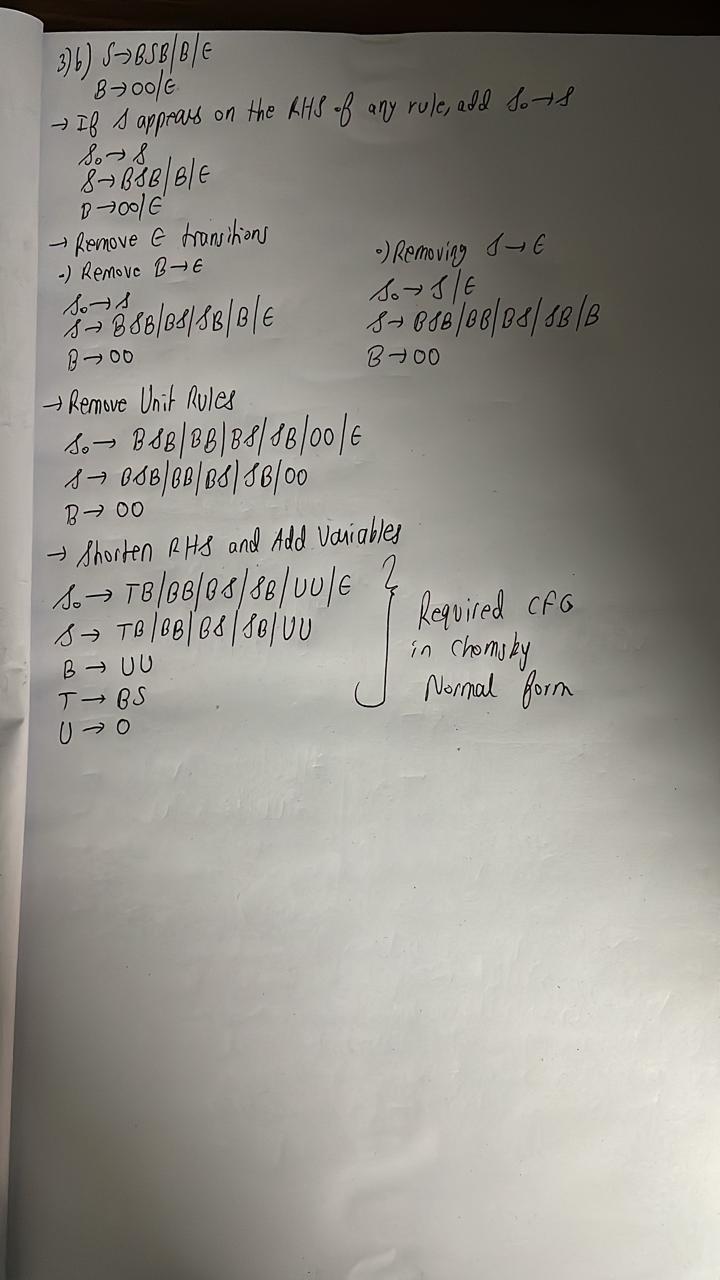 3)b) S→BSB|B|ϵ
B→00|ϵ
→ If S appears on the RHS of any rule, add S₀→S
S₀→S
S→BSB|B|ϵ
B→00|ϵ
→ Remove ϵ transitions
•) Remove B→ϵ
S₀→S
S→ BSB|BS|SB|B|ϵ
B→00
•) Removing S→ϵ
S₀→S|ϵ
S→BSB|BB|BS|SB|B
B→00
→ Remove Unit Rules
S₀→ BSB|BB|BS|SB|00|ϵ
S→ BSB|BB|BS|SB|00
B→ 00
→ Shorten RHS and Add Variables
S₀→ TB|BB|BS|SB|UU|ϵ
S→ TB|BB|BS|SB|UU
B→ UU
T→ BS
U→ 0
Required CFG
in Chomsky
Normal form